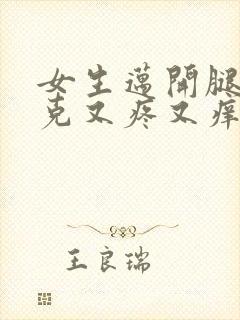 女生邁開腿
克又疼又痒
王良瑞